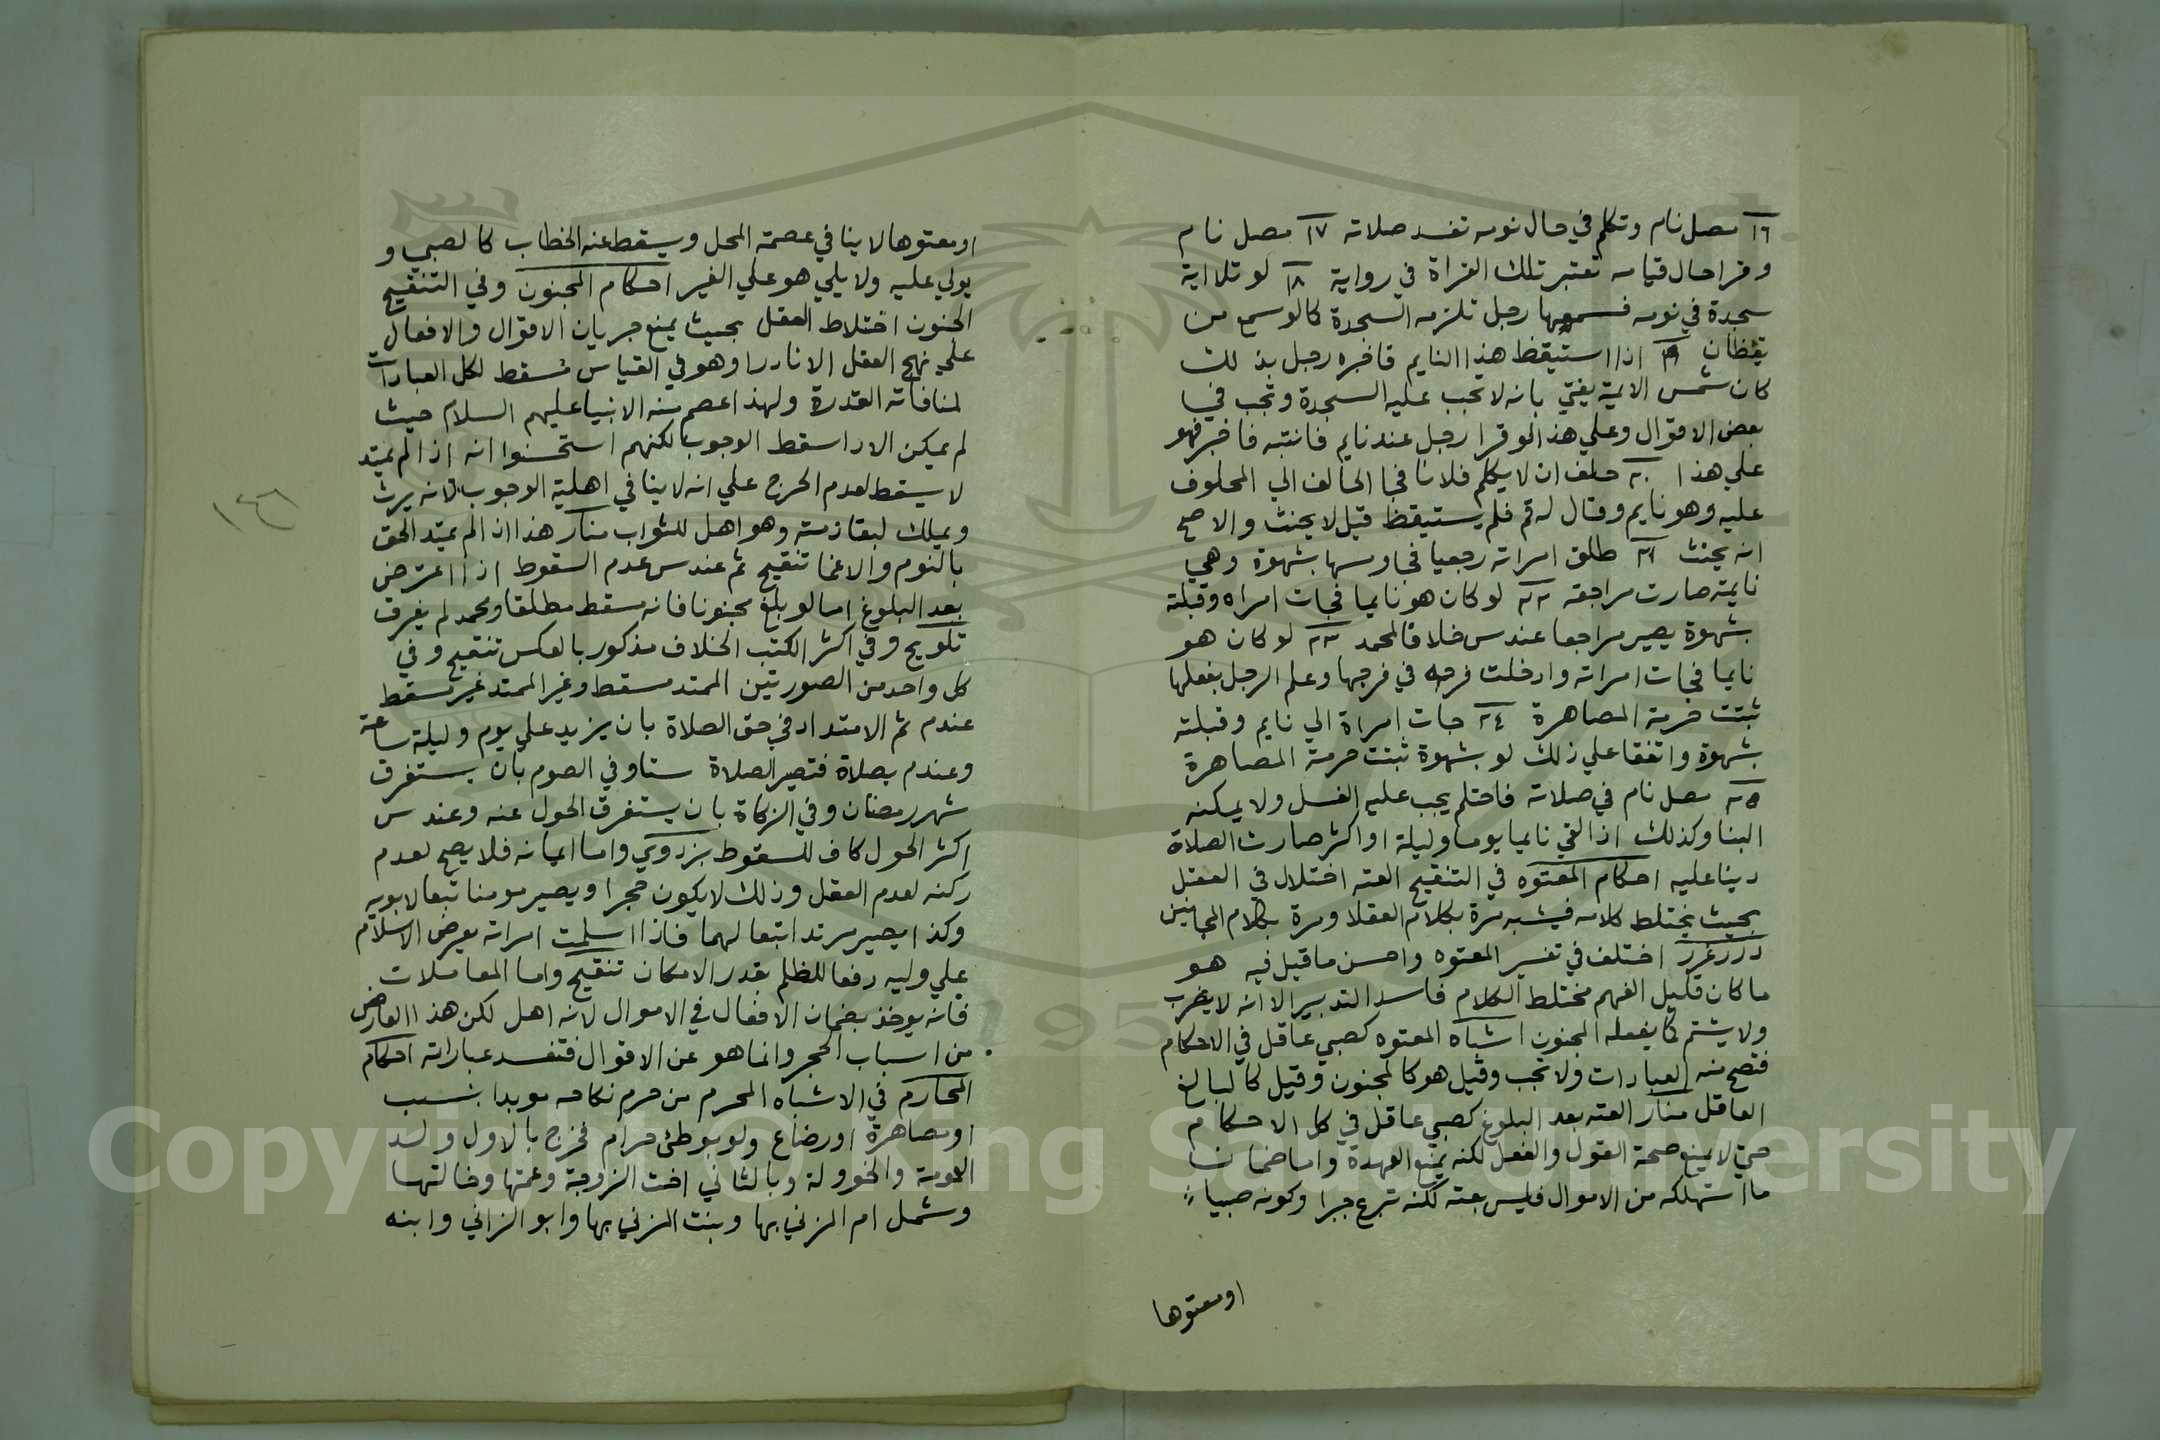 ١٦ مصل نام وتكلم في حال نومه تفسد صلاته ١٧ مصل نام
وقرا حال قيامه تعتبر تلك القراة في رواية ١٨ لو تلا اية
سجدة في نومه فسمعها رجل تلزمه السجدة كالو سمع من
يقظان ١٩ اذا استيقظ هذا النايم فاخبره رجل بذلك
كان شمس الايمة يفتي بانه لا تجب عليه السجدة وتجب في
بعض الاقوال وعلي هذا لو قرا رجل عند نايم فانتبه فاخبر فهو
علي هذا ٢٠ حلف ان لا يكلم فلانا فجا الحالف الي المحلوف
عليه وهو نايم وقال له قم فلم يستيقظ قيل لا يحنث والاصح
انه يحنث ٢١ طلق امراته رجعيا فجا ومسها بشهوة وهي
نايمة صارت مراجعه ٢٢ لو كان هو نايما فجات امراه وقبلته
بشهوة يصير مراجعا عند س خلافا لمحمد ٢٣ لو كان هو
نايما فجات امراته وادخلت فرجه في فرجها وعلم الرجل بفعلها
ثبتت حرمة المصاهرة ٢٤ جات امراة الي نايم وقبلته
بشهوة واتفقا علي ذلك لو بشهوة ثبتت حرمة المصاهرة
٢٥ مصل نام في صلاته فاحتلم يجب عليه الغسل ولا يمكنه
البنا وكذلك اذا لقي نايما يوما وليلة او اكثر صارت الصلاة
دينا عليه احكام المعتوه في التنقيح العته اختلال في العقل
بحيث يختلط كلامه فيشبه مرة بكلام العقلا ومرة بكلام المجانين
درر غرر اختلف في تفسير المعتوه واحسن ما قيل فيه هو
ما كان قليل الفهم مختلط الكلام فاسد التدبير الا انه لا يضرب
ولا يشتم كما يفعله المجنون اشباه المعتوه كصبي عاقل في الاحكام
فتصح منه العبادات ولا تجب وقيل هو كالمجنون وقيل كالبالغ
العاقل منار العته بعد البلوغ كصبي عاقل في كل الاحكام
حتي لا يمنع صحة القول والفعل لكنه يمنع العهدة واما ضمان
ما استهلكه من الاموال فليس بعته لكنه شرع جبرا وكونه صبيا
او معتوها
او معتوها لا ينافي عصمة المحل ويسقط عنه الخطاب كالصبي و
يولي عليه ولا يلي هو علي الغير احكام المجنون وفي التنقيح
الجنون اختلاط العقل بحيث يمنع جريان الاقوال والافعال
علي نهج العقل الا نادرا وهو في القياس مسقط لكل العبادات
لمنافاته القدرة ولهذا عصم منه الانبيا عليهم السلام حيث
لم يمكن الادا سقط الوجوب لكنهم استحسنوا انه اذا لم يمتد
لا يسقط لعدم الحرج علي انه لا ينافي اهلية الوجوب لانه يرث
ويملك لبقا ذمته وهو اهل للثواب منار هذا ان لم يمتد الحق
بالنوم والاغما تنقيح ثم عند س عدم السقوط اذا اعترض
بعد البلوغ اما لو بلغ مجنونا فانه مسقط مطلقا ومحمد لم يفرق
تلويح وفي اكثر الكتب الخلاف مذكور بالعكس تنقيح وفي
كل واحد من الصورتين الممتد مسقط وغير الممتد غير مسقط
عندم ثم الامتداد في حق الصلاة بان يزيد علي يوم وليلة ساعة
وعندم بصلاة فتصير الصلاة ستا وفي الصوم بان يستغرق
شهر رمضان وفي الزكاة بان يستغرق الحول عنه وعند س
اكثر الحول كاف للسقوط بزدوي واما ايمانه فلا يصح لعدم
ركنه لعدم العقل وذلك لا يكون حجرا ويصير مومنا تبعا لابويه
وكذا يصير مرتدا تبعا لهما فاذا اسلمت امراته يعرض الاسلام
علي وليه دفعا للظلم بقدر الامكان تنقيح واما المعاملات
فانه يوخذ بضمان الافعال في الاموال لانه اهل لكن هذا العارض
من اسباب الحجر وانما هو عن الاقوال فتفسد عباراته احكام
المحارم في الاشباه المحرم من حرم نكاحه موبدا بنسب
او مصاهرة او رضاع ولو بوطئ حرام فخرج بالاول ولد
العمومة والخوولة وبالثاني اخت الزوجة وعمتها وخالتها
وشمل ام المزني بها وبنت المزني بها وابو الزاني وابنه
١٤٦
Copyright © King Saud University
195